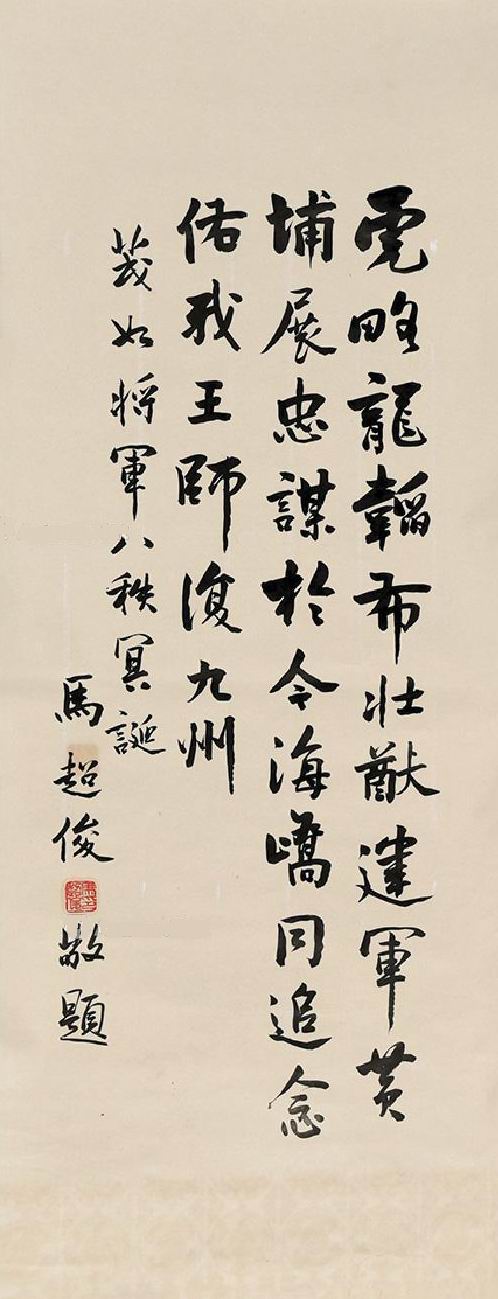 虎略龍韜布壯猷建軍黃
埔展忠謀於今海嶠同追念
佑我王師復九州
茂如將軍八秩冥誕
馬超俊敬題